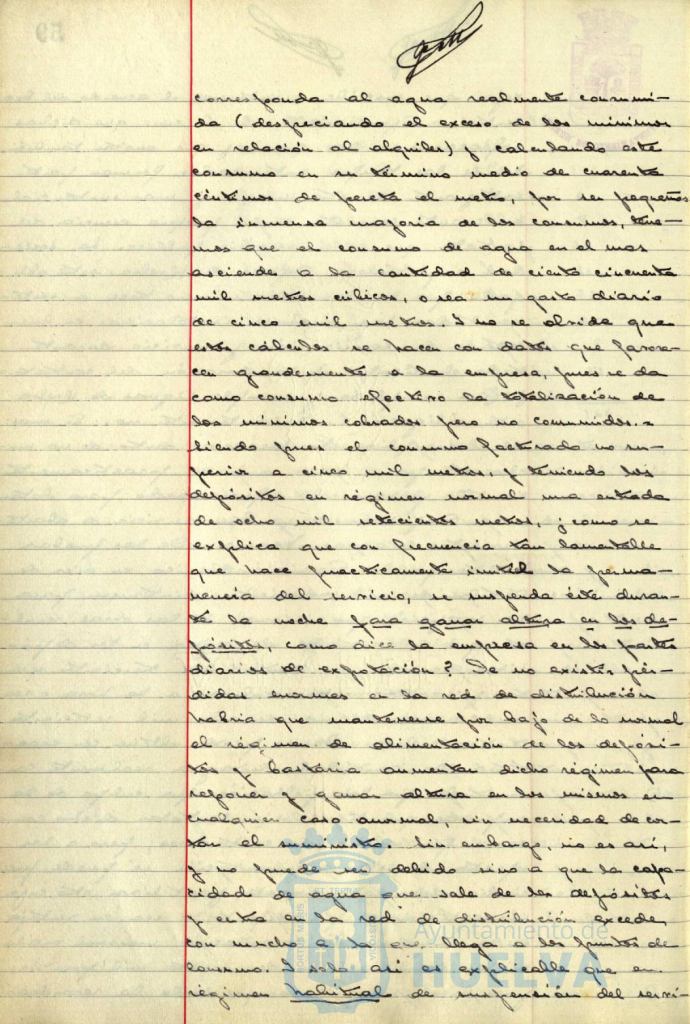 corresponda al agua realmente consumi-
da (despreciando el exceso de los minimos
en relación al alquiler) y calculando este
consumo en su término medio de cuarenta
céntimos de peseta el metro, por ser pequeños
la inmensa mayoria de los consumos, tene-
mos que el consumo de agua en el mes
asciende a la cantidad de ciento cincuenta
mil metros cúbicos, o sea un gasto diario
de cinco mil metros. Y no se olvide que
estos cálculos se hacen con datos que favore-
cen grandemente a la empresa, pues se da
como consumo efectivo la totalización de
los minimos cobrados pero no consumidos.=
Siendo pues el consumo facturado no su-
perior a cinco mil metros, y teniendo los
depósitos en régimen normal una entrada
de ocho mil setecientos metros, ¿como se
explica que con frecuencia tan lamentable
que hace practicamente inutil la perma-
nencia del servicio, se suspenda éste duran-
te la noche para ganar altura en los de-
pósitos, como dice la empresa en los partes
diarios de explotación? De no existir pér-
didas enormes en la red de distribución
habria que mantenerse por bajo de lo normal
el régimen de alimentación de los depósi-
tos y bastaria aumentar dicho régimen para
reponer y ganar altura en los mismos en
cualquier caso anormal, sin necesidad de cor-
tar el suministro. Sin embargo, no es así,
y no puede ser debido sino a que la capa-
cidad de agua que sale de los depósitos
y entra en la red de distribución excede
con mucho a la que llega a los puntos de
consumo. Y solo así es explicable que en
régimen habitual de suspensión del servi-
Ayuntamiento de
HUELVA